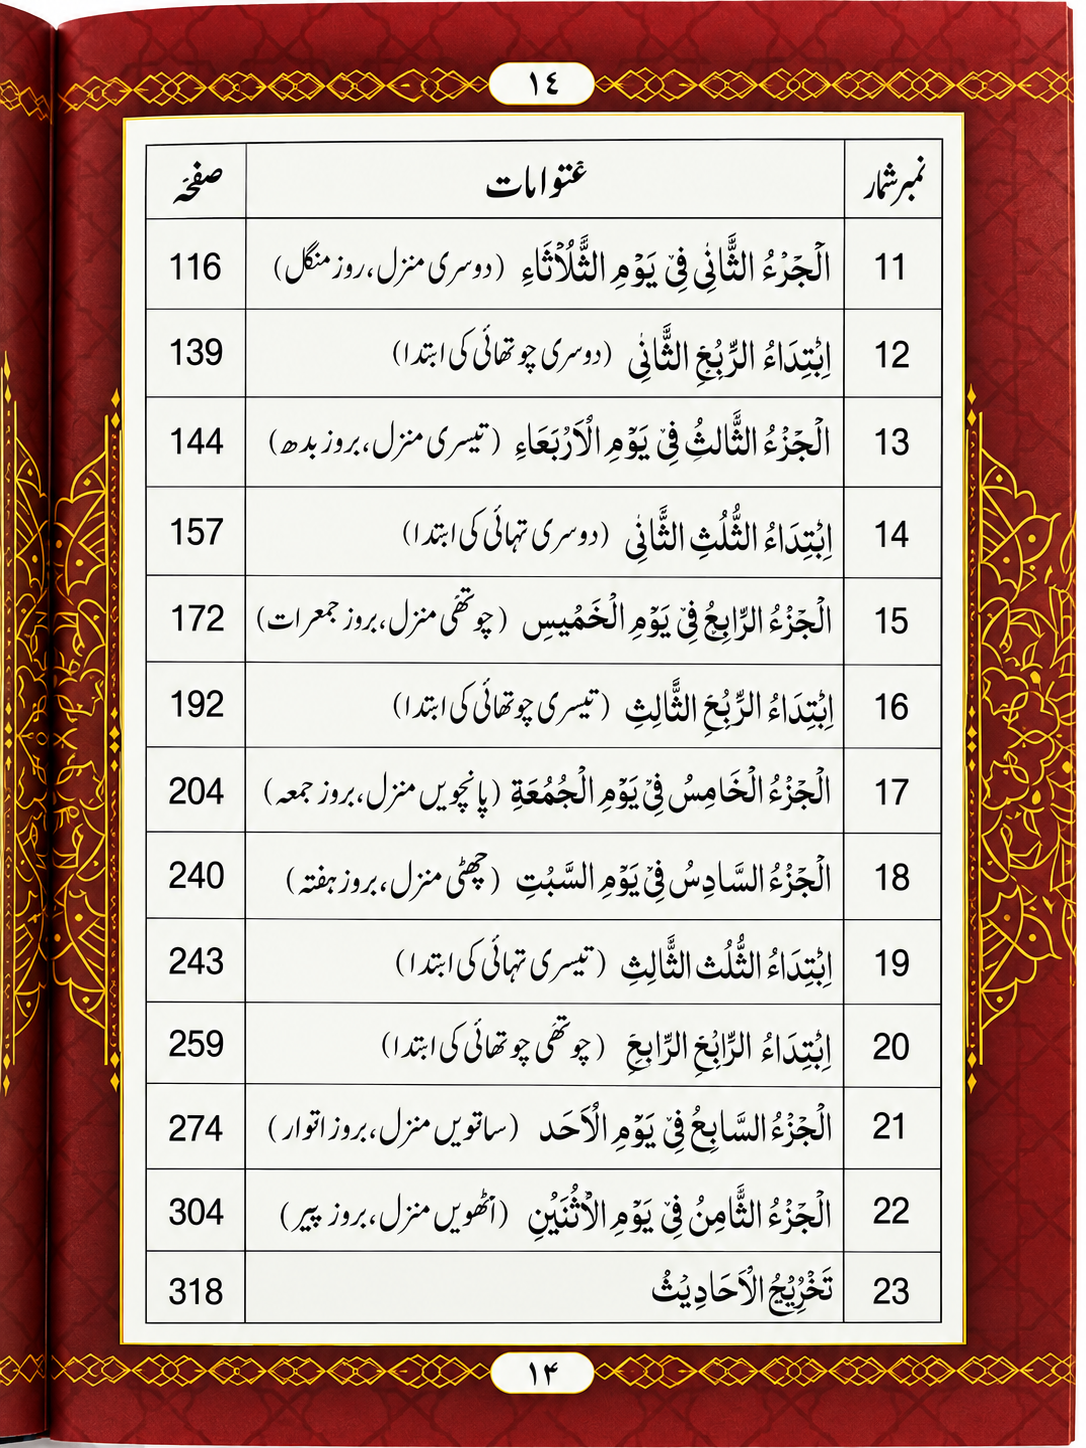 ١٤
نمبر شمار عنوانات صفحہ
11 اَلْجَزْءُ الثَّانِیْ فِیْ یَوْمِ الثُّلَاثَاءِ (دوسری منزل، روز منگل) 116
12 اِبْتِدَاءُ الرِّبُعِ الثَّانِیْ (دوسری چوتھائی کی ابتدا) 139
13 اَلْجُزْءُ الثَّالِثُ فِیْ یَوْمِ الْاَرْبَعَاءِ (تیسری منزل، بروز بدھ) 144
14 اِبْتِدَاءُ الثُّلُثِ الثَّانِیْ (دوسری تہائی کی ابتدا) 157
15 اَلْجُزْءُ الرَّابِعُ فِیْ یَوْمِ الْخَمِیْسِ (چوتھی منزل، بروز جمعرات) 172
16 اِبْتِدَاءُ الرِّبُعِ الثَّالِثِ (تیسری چوتھائی کی ابتدا) 192
17 اَلْجُزْءُ الْخَامِسُ فِیْ یَوْمِ الْجُمُعَةِ (پانچویں منزل، بروز جمعہ) 204
18 اَلْجُزْءُ السَّادِسُ فِیْ یَوْمِ السَّبْتِ (چھٹی منزل، بروز ہفتہ) 240
19 اِبْتِدَاءُ الثُّلُث الثَّالِثِ (تیسری تہائی کی ابتدا) 243
20 اِبْتِدَاءُ الرَّابْعِ الرَّابِعِ (چوتھی چوتھائی کی ابتدا) 259
21 اَلْجُزْءُ السَّابِعُ فِیْ یَوْمِ الْاَحَد (ساتویں منزل، بروز اتوار) 274
22 اَلْجُزْءُ الثَّامِنُ فِیْ یَوْمِ الْاِثْنَیْنِ (آٹھویں منزل، بروز پیر) 304
23 تَخْرِیْجُ الْاَحَادِیْثُ 318
١۴